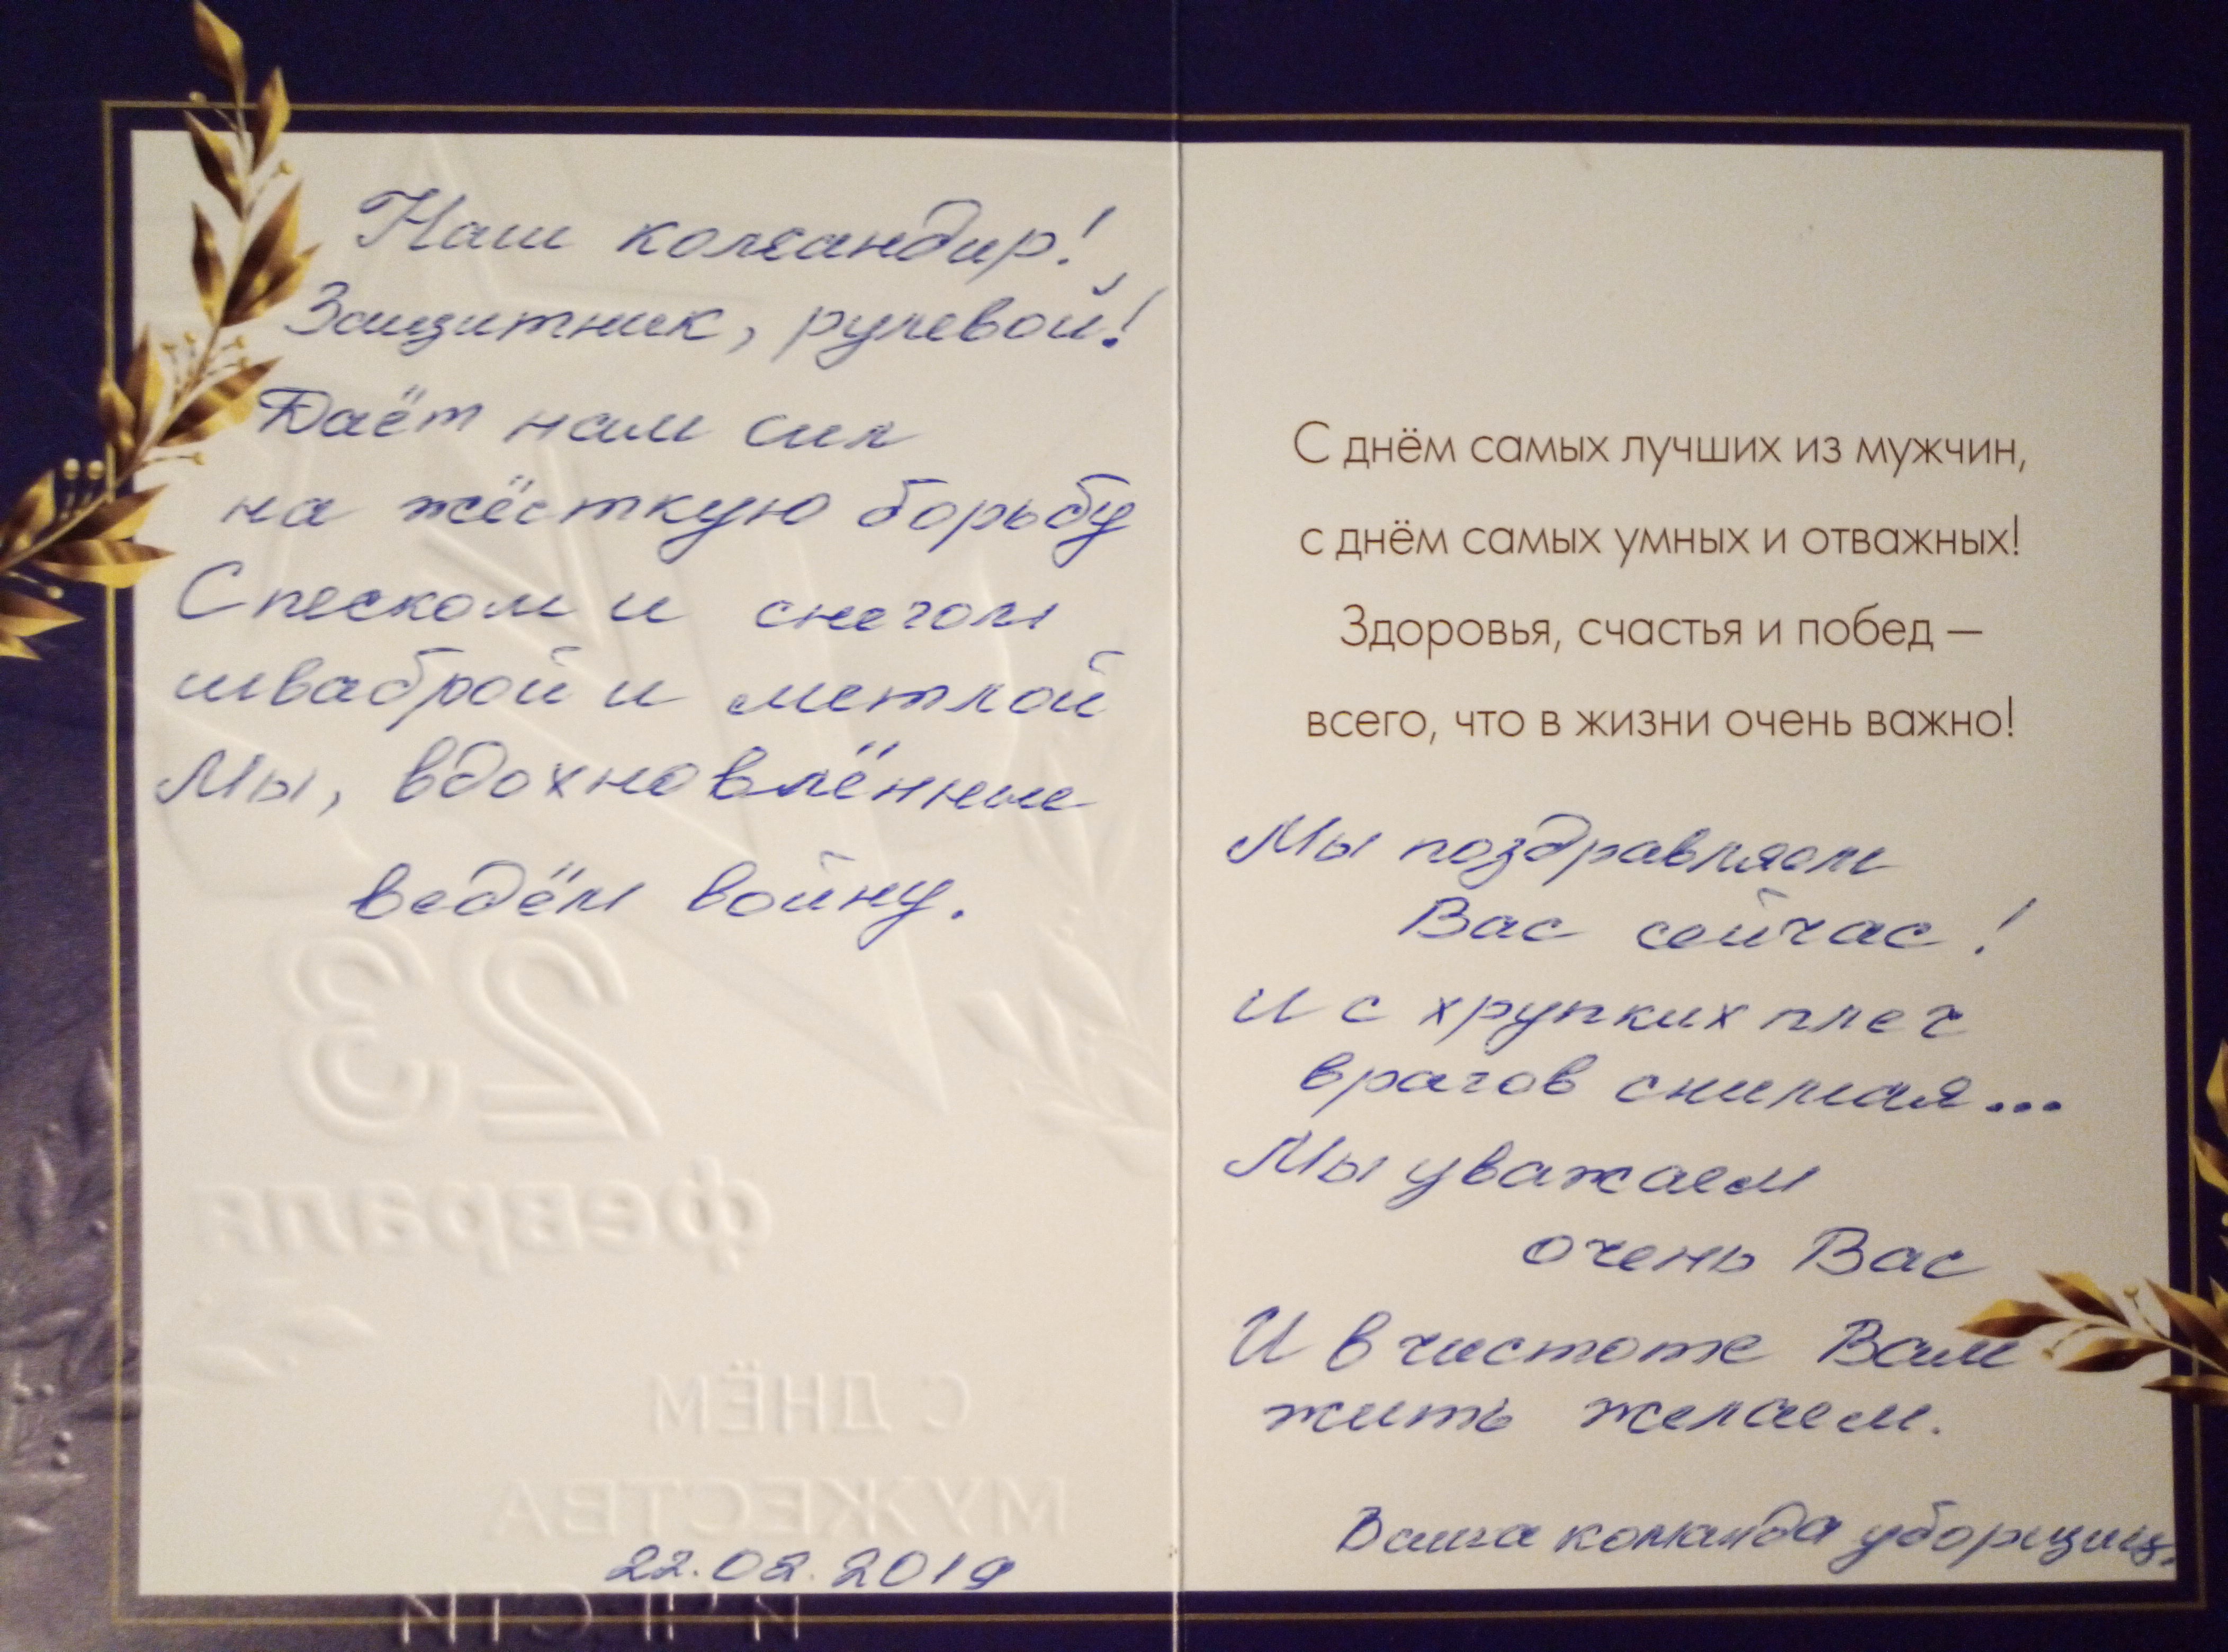 Наш командир!
Защитник, рулевой!
Даёт нам сил
на жёсткую борьбу
С песком и снегом
шваброй и метлой
Мы, вдохновлённые
ведём войну.
23
февраля
С ДНЁМ
МУЖЕСТВА
22.02.2019
С днём самых лучших из мужчин,
с днём самых умных и отважных!
Здоровья, счастья и побед —
всего, что в жизни очень важно!
Мы поздравляем
Вас сейчас!
и с хрупких плеч
врагов снимая...
Мы уважаем
очень Вас
И в чистоте Вам
жить желаем.
Ваша команда уборщиц.